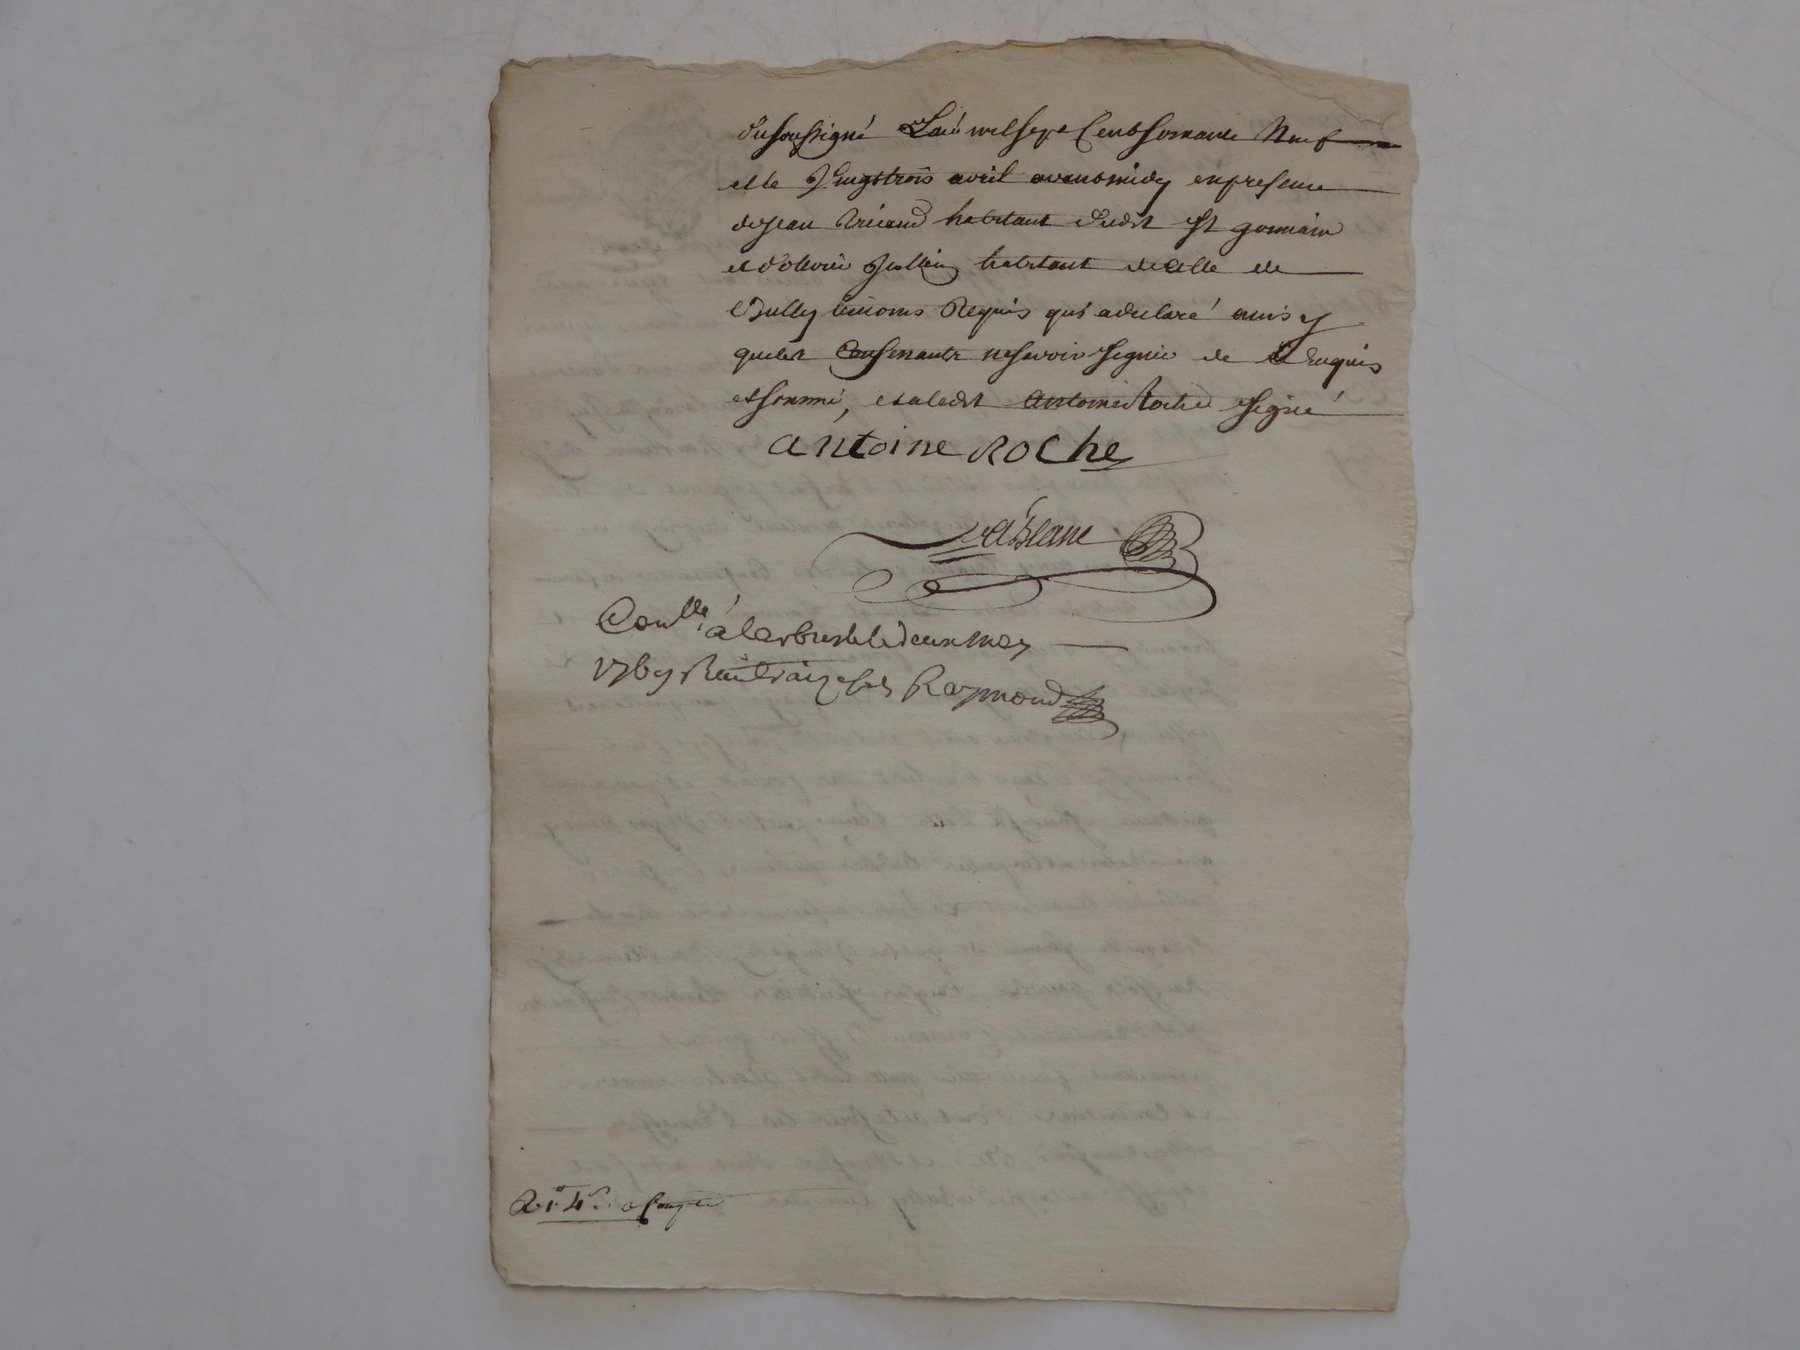 Soussigné L'an mil sept Cent soixante Neuf
et le Vingttrois avril avant midy en presence
de Jean habitant dudit St germain
et d'olivier Jullien habitant de celle de
Bully temoins Requis qui a declaré ainsy
que les Consinants ne savoir signer de ce Enquis
et sommé, et a ledit antoine Roche signé
antoine ROChe
Contllé à Larbresle le deux may
1769 Reçu Raymond